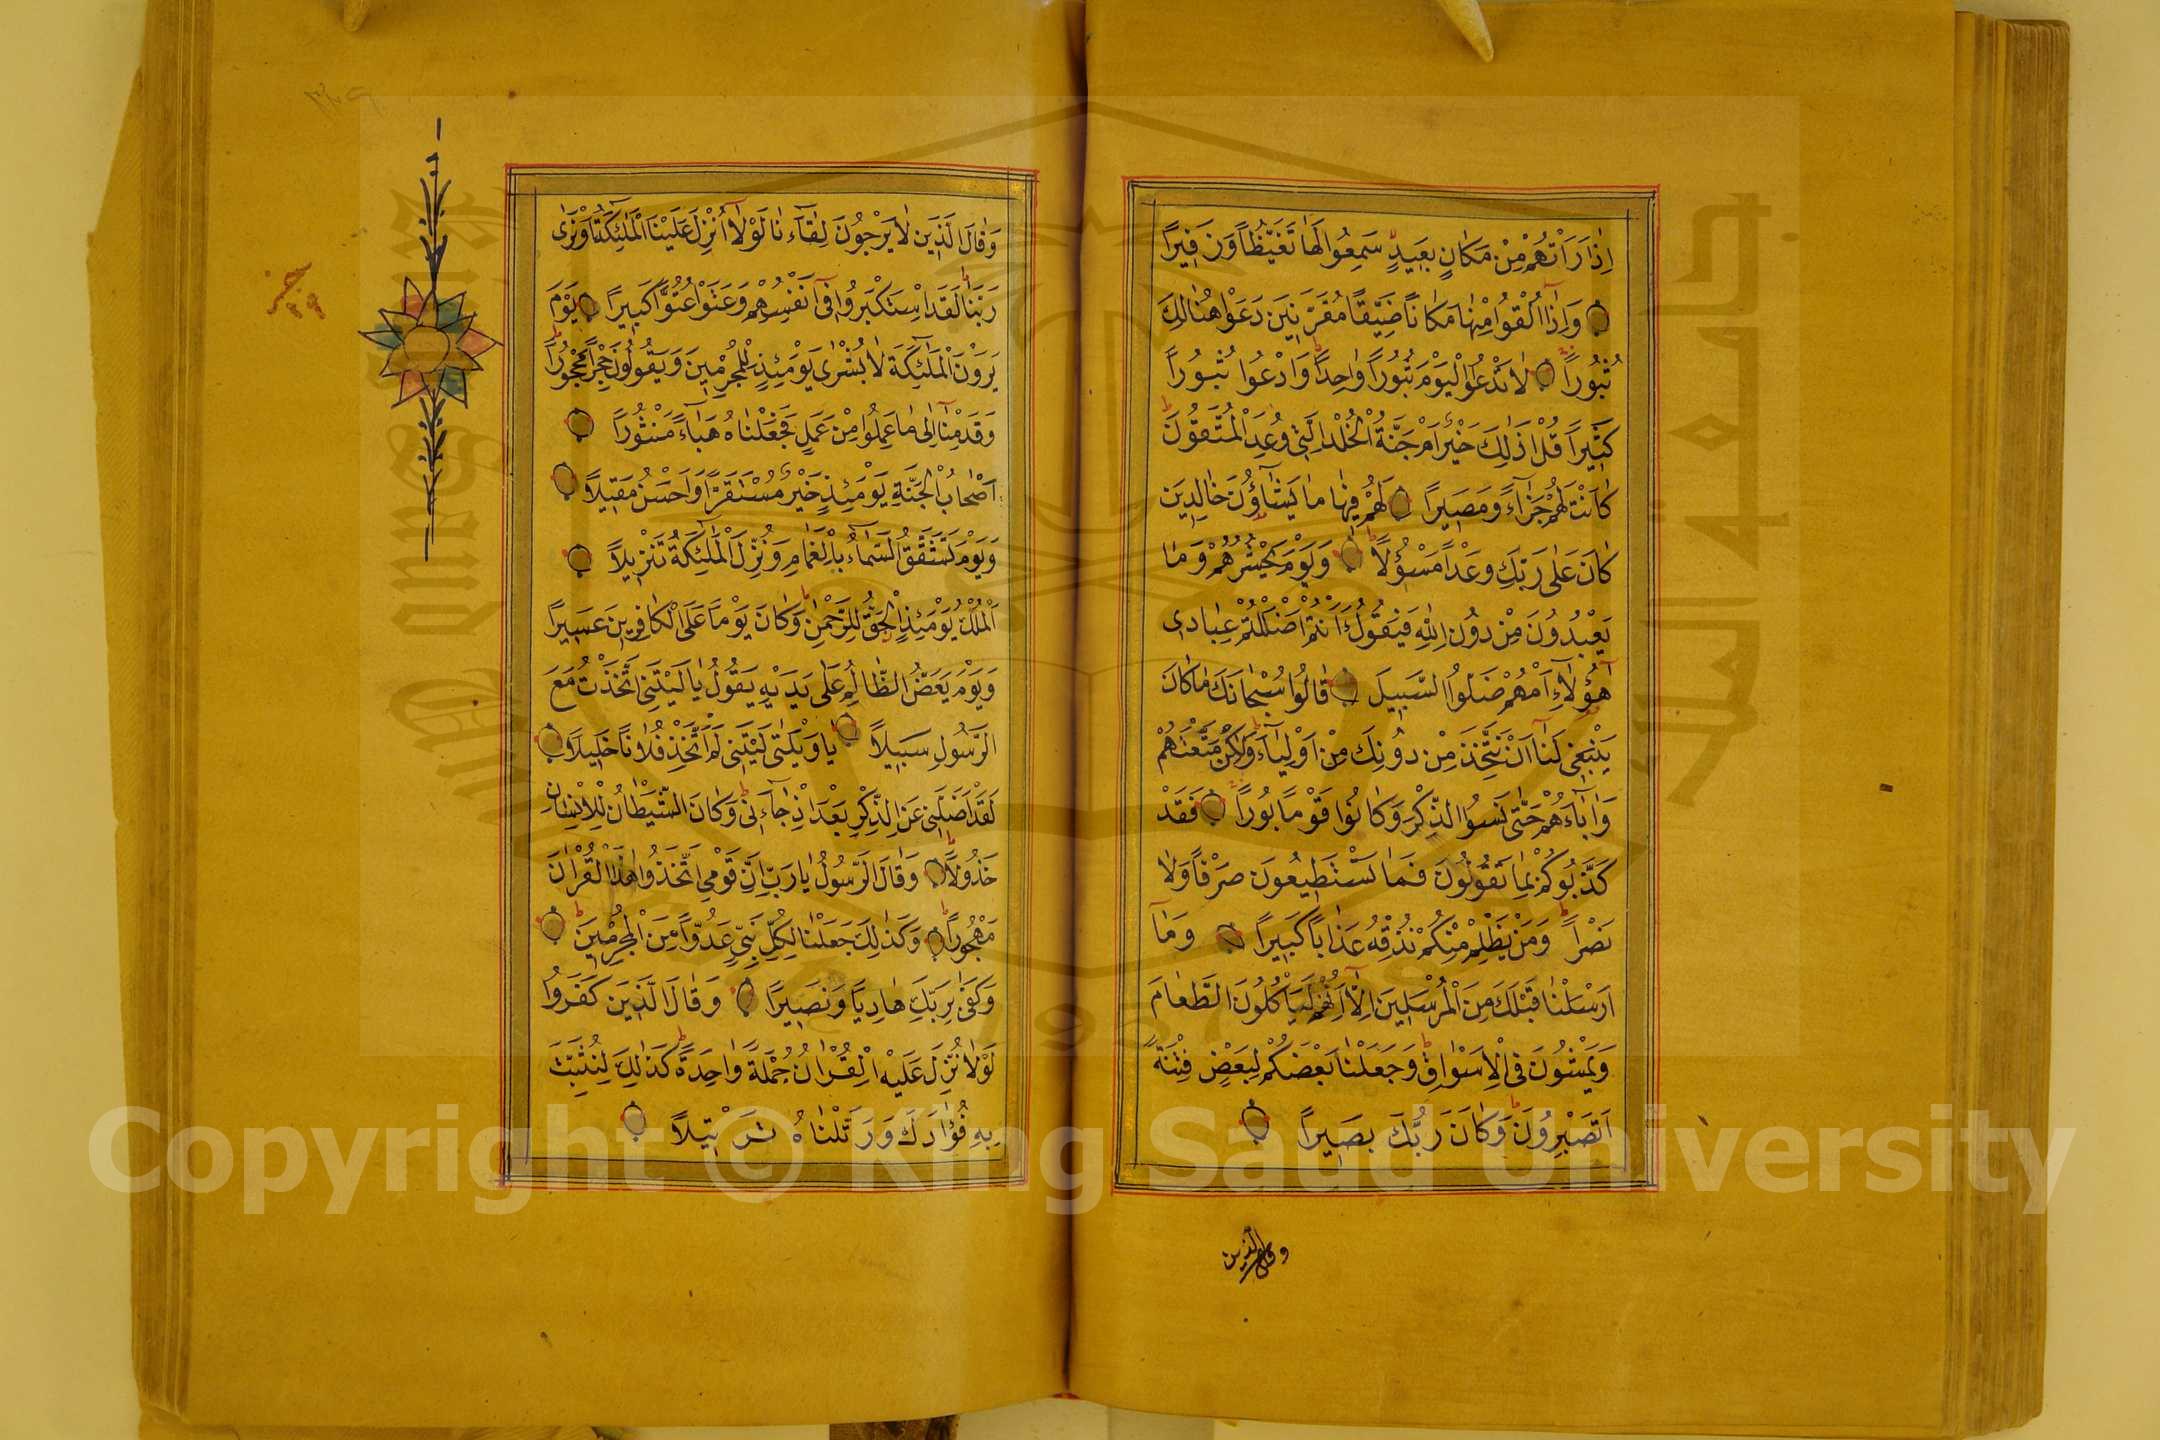 اِذَا رَاَتْهُمْ مِنْ مَكَانٍ بَعِيدٍ سَمِعُوا لَهَا تَغَيُّظًا وَزَفِيرًا
وَاِذَا اُلْقُوا مِنْهَا مَكَانًا ضَيِّقًا مُقَرَّنِينَ دَعَوْا هُنَالِكَ
ثُبُورًا لَا تَدْعُوا الْيَوْمَ ثُبُورًا وَاحِدًا وَادْعُوا ثُبُورًا
كَثِيرًا قُلْ اَذٰلِكَ خَيْرٌ اَمْ جَنَّةُ الْخُلْدِ الَّتِي وُعِدَ الْمُتَّقُونَ
كَانَتْ لَهُمْ جَزَاءً وَمَصِيرًا لَهُمْ فِيهَا مَا يَشَاؤُنَ خَالِدِينَ
كَانَ عَلٰى رَبِّكَ وَعْدًا مَسْؤُلًا وَيَوْمَ يَحْشُرُهُمْ وَمَا
يَعْبُدُونَ مِنْ دُونِ اللّٰهِ فَيَقُولُ ءَاَنْتُمْ اَضْلَلْتُمْ عِبَادِي
هٰؤُلَاءِ اَمْ هُمْ ضَلُّوا السَّبِيلَ قَالُوا سُبْحَانَكَ مَا كَانَ
يَنْبَغِي لَنَا اَنْ نَتَّخِذَ مِنْ دُونِكَ مِنْ اَوْلِيَاءَ وَلٰكِنْ مَتَّعْتَهُمْ
وَاٰبَاءَهُمْ حَتّٰى نَسُوا الذِّكْرَ وَكَانُوا قَوْمًا بُورًا فَقَدْ
كَذَّبُوكُمْ بِمَا تَقُولُونَ فَمَا تَسْتَطِيعُونَ صَرْفًا وَلَا
نَصْرًا وَمَنْ يَظْلِمْ مِنْكُمْ نُذِقْهُ عَذَابًا كَبِيرًا وَمَا
اَرْسَلْنَا قَبْلَكَ مِنَ الْمُرْسَلِينَ اِلَّا اِنَّهُمْ لَيَاْكُلُونَ الطَّعَامَ
وَيَمْشُونَ فِي الْاَسْوَاقِ وَجَعَلْنَا بَعْضَكُمْ لِبَعْضٍ فِتْنَةً
اَتَصْبِرُونَ وَكَانَ رَبُّكَ بَصِيرًا
وقال الذين
وَقَالَ الَّذِينَ لَا يَرْجُونَ لِقَاءَنَا لَوْلَا اُنْزِلَ عَلَيْنَا الْمَلٰئِكَةُ اَوْ نَرٰى
رَبَّنَا لَقَدِ اسْتَكْبَرُوا فِي اَنْفُسِهِمْ وَعَتَوْا عُتُوًّا كَبِيرًا يَوْمَ
يَرَوْنَ الْمَلٰئِكَةَ لَا بُشْرٰى يَوْمَئِذٍ لِلْمُجْرِمِينَ وَيَقُولُونَ حِجْرًا مَحْجُورًا
وَقَدِمْنَا اِلٰى مَا عَمِلُوا مِنْ عَمَلٍ فَجَعَلْنَاهُ هَبَاءً مَنْثُورًا
اَصْحَابُ الْجَنَّةِ يَوْمَئِذٍ خَيْرٌ مُسْتَقَرًّا وَاَحْسَنُ مَقِيلًا
وَيَوْمَ تَشَقَّقُ السَّمَاءُ بِالْغَمَامِ وَنُزِّلَ الْمَلٰئِكَةُ تَنْزِيلًا
اَلْمُلْكُ يَوْمَئِذٍ الْحَقُّ لِلرَّحْمٰنِ وَكَانَ يَوْمًا عَلَى الْكَافِرِينَ عَسِيرًا
وَيَوْمَ يَعَضُّ الظَّالِمُ عَلٰى يَدَيْهِ يَقُولُ يَا لَيْتَنِي اتَّخَذْتُ مَعَ
الرَّسُولِ سَبِيلًا يَا وَيْلَتٰى لَيْتَنِي لَمْ اَتَّخِذْ فُلَانًا خَلِيلًا
لَقَدْ اَضَلَّنِي عَنِ الذِّكْرِ بَعْدَ اِذْ جَاءَنِي وَكَانَ الشَّيْطَانُ لِلْاِنْسَانِ
خَذُولًا وَقَالَ الرَّسُولُ يَا رَبِّ اِنَّ قَوْمِي اتَّخَذُوا هٰذَا الْقُرْاٰنَ
مَهْجُورًا وَكَذٰلِكَ جَعَلْنَا لِكُلِّ نَبِيٍّ عَدُوًّا مِنَ الْمُجْرِمِينَ
وَكَفٰى بِرَبِّكَ هَادِيًا وَنَصِيرًا وَقَالَ الَّذِينَ كَفَرُوا
لَوْلَا نُزِّلَ عَلَيْهِ الْقُرْاٰنُ جُمْلَةً وَاحِدَةً كَذٰلِكَ لِنُثَبِّتَ
بِهِ فُؤَادَكَ وَرَتَّلْنَاهُ تَرْتِيلًا
Copyright © King Saud University
جامعة الملك سعود
King Saud University
1957